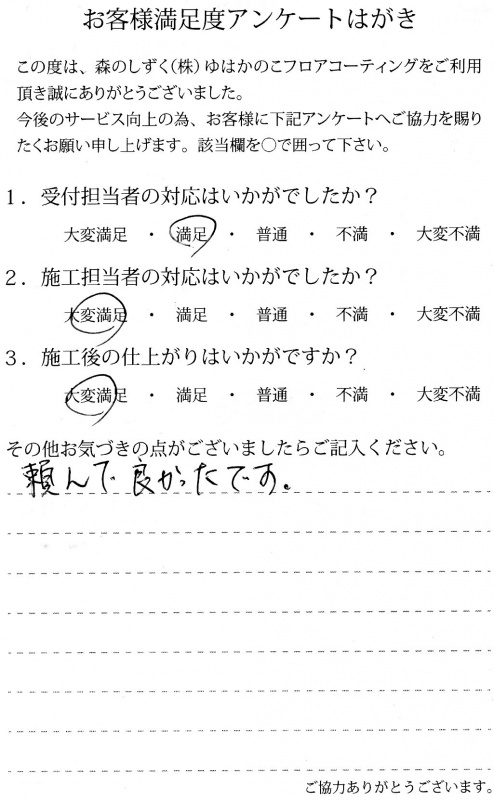 お客様満足度アンケートはがき
この度は、森のしずく(株)ゆはかのこフロアコーティングをご利用
頂き誠にありがとうございました。
今後のサービス向上の為、お客様に下記アンケートへご協力を賜り
たくお願い申し上げます。該当欄を○で囲って下さい。
1．受付担当者の対応はいかがでしたか？
大変満足 ・ 満足 ・ 普通 ・ 不満 ・ 大変不満
2．施工担当者の対応はいかがでしたか？
大変満足 ・ 満足 ・ 普通 ・ 不満 ・ 大変不満
3．施工後の仕上がりはいかがですか？
大変満足 ・ 満足 ・ 普通 ・ 不満 ・ 大変不満
その他お気づきの点がございましたらご記入ください。
頼んで良かったです。
ご協力ありがとうございます。